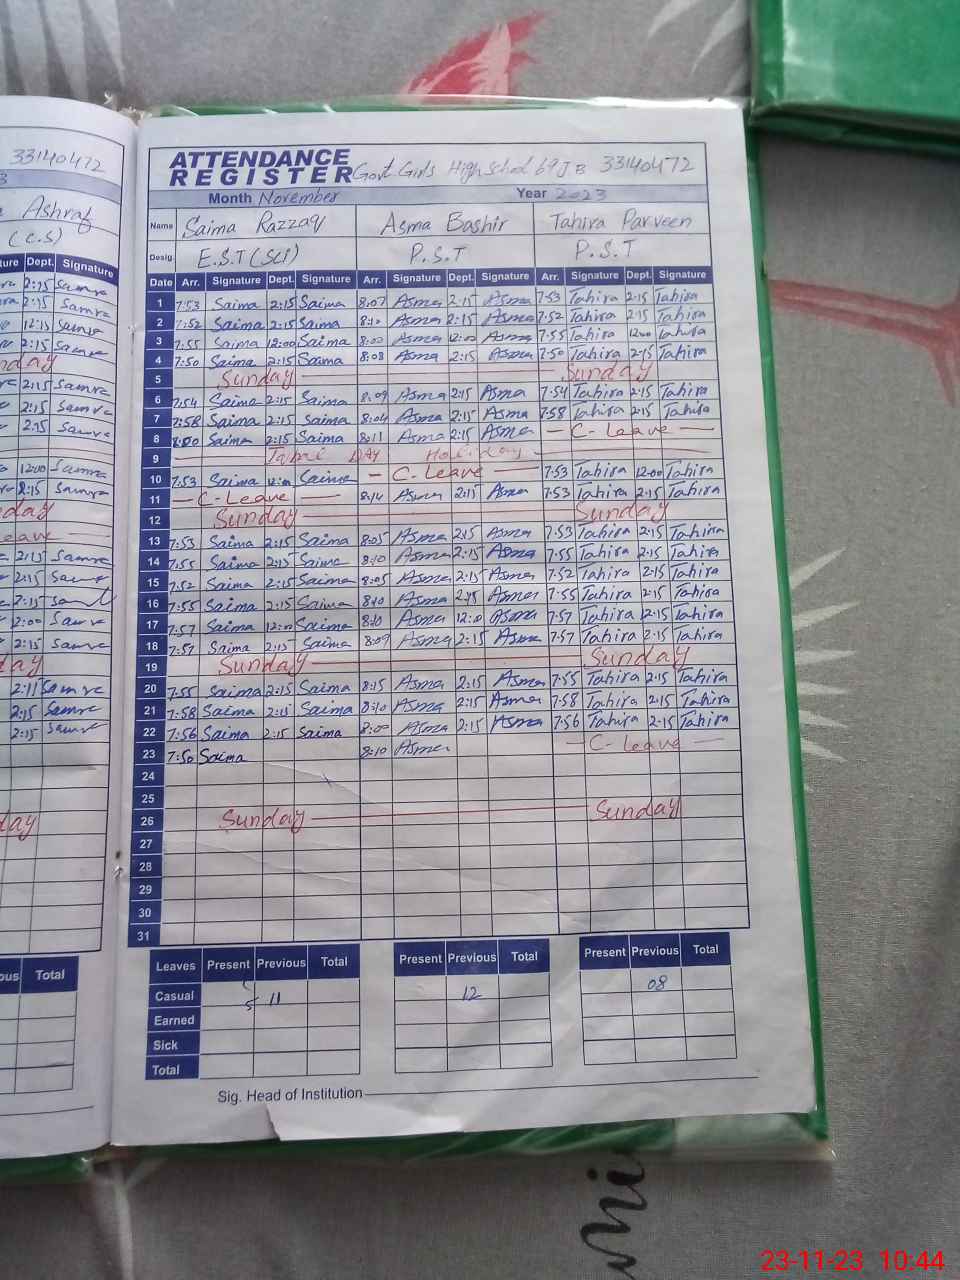 33140472
Ashraf
(C.S)
ture Dept. Signature
2:15 Samra
2:15 Samra
12:15 Samra
2:15 Samra
2:15 Samra
2:15 Samra
2:15 Samra
12:00 Samra
2:15 Samra
2:15 Samra
2:15
2:15
2:00 Samra
2:15 Samra
2:15 Samra
2:15 Samra
Total
ATTENDANCE
REGISTER Govt. Girls High School 69 J B 33140472
Month November Year 2023
Name Saima Razzaq Asma Bashir Tahira Parveen
Desig. E.S.T (Sci) P.S.T P.S.T
Date Arr. Signature Dept. Signature Arr. Signature Dept. Signature Arr. Signature Dept. Signature
1 7:53 Saima 2:15 Saima 8:07 Asma 2:15 Asma 7:53 Tahira 2:15 Tahira
2 7:52 Saima 2:15 Saima 8:10 Asma 2:15 Asma 7:52 Tahira 2:15 Tahira
3 7:55 Saima 12:00 Saima 8:00 Asma 12:00 Asma 7:55 Tahira 12:00 Tahira
4 7:50 Saima 2:15 Saima 8:08 Asma 2:15 Asma 7:50 Tahira 2:15 Tahira
5 Sunday Sunday
6 7:54 Saima 2:15 Saima 8:09 Asma 2:15 Asma 7:54 Tahira 2:15 Tahira
7 7:58 Saima 2:15 Saima 8:04 Asma 2:15 Asma 7:58 Tahira 2:15 Tahira
8 8:00 Saima 2:15 Saima 8:11 Asma 2:15 Asma - C- Leave -
9 DAY Holiday
10 7:53 Saima 12:00 Saima - C- Leave - 7:53 Tahira 12:00 Tahira
11 - C- Leave - 8:14 Asma 2:15 Asma 7:53 Tahira 2:15 Tahira
12 Sunday Sunday
13 7:53 Saima 2:15 Saima 8:05 Asma 2:15 Asma 7:53 Tahira 2:15 Tahira
14 7:55 Saima 2:15 Saima 8:10 Asma 2:15 Asma 7:55 Tahira 2:15 Tahira
15 7:52 Saima 2:15 Saima 8:05 Asma 2:15 Asma 7:52 Tahira 2:15 Tahira
16 7:55 Saima 2:15 Saima 8:10 Asma 2:15 Asma 7:55 Tahira 2:15 Tahira
17 7:57 Saima 12:00 Saima 8:10 Asma 12:00 Asma 7:57 Tahira 12:15 Tahira
18 7:57 Saima 2:15 Saima 8:09 Asma 2:15 Asma 7:57 Tahira 2:15 Tahira
19 Sunday Sunday
20 7:55 Saima 2:15 Saima 8:15 Asma 2:15 Asma 7:55 Tahira 2:15 Tahira
21 7:58 Saima 2:15 Saima 8:10 Asma 2:15 Asma 7:58 Tahira 2:15 Tahira
22 7:56 Saima 2:15 Saima 8:00 Asma 2:15 Asma 7:56 Tahira 2:15 Tahira
23 7:50 Saima 8:10 Asma - C- Leave -
24
25
26 Sunday Sunday
27
28
29
30
31
Leaves Present Previous Total Present Previous Total Present Previous Total
Casual 5 11 12 08
Earned
Sick
Total
Sig. Head of Institution
23-11-23 10:44